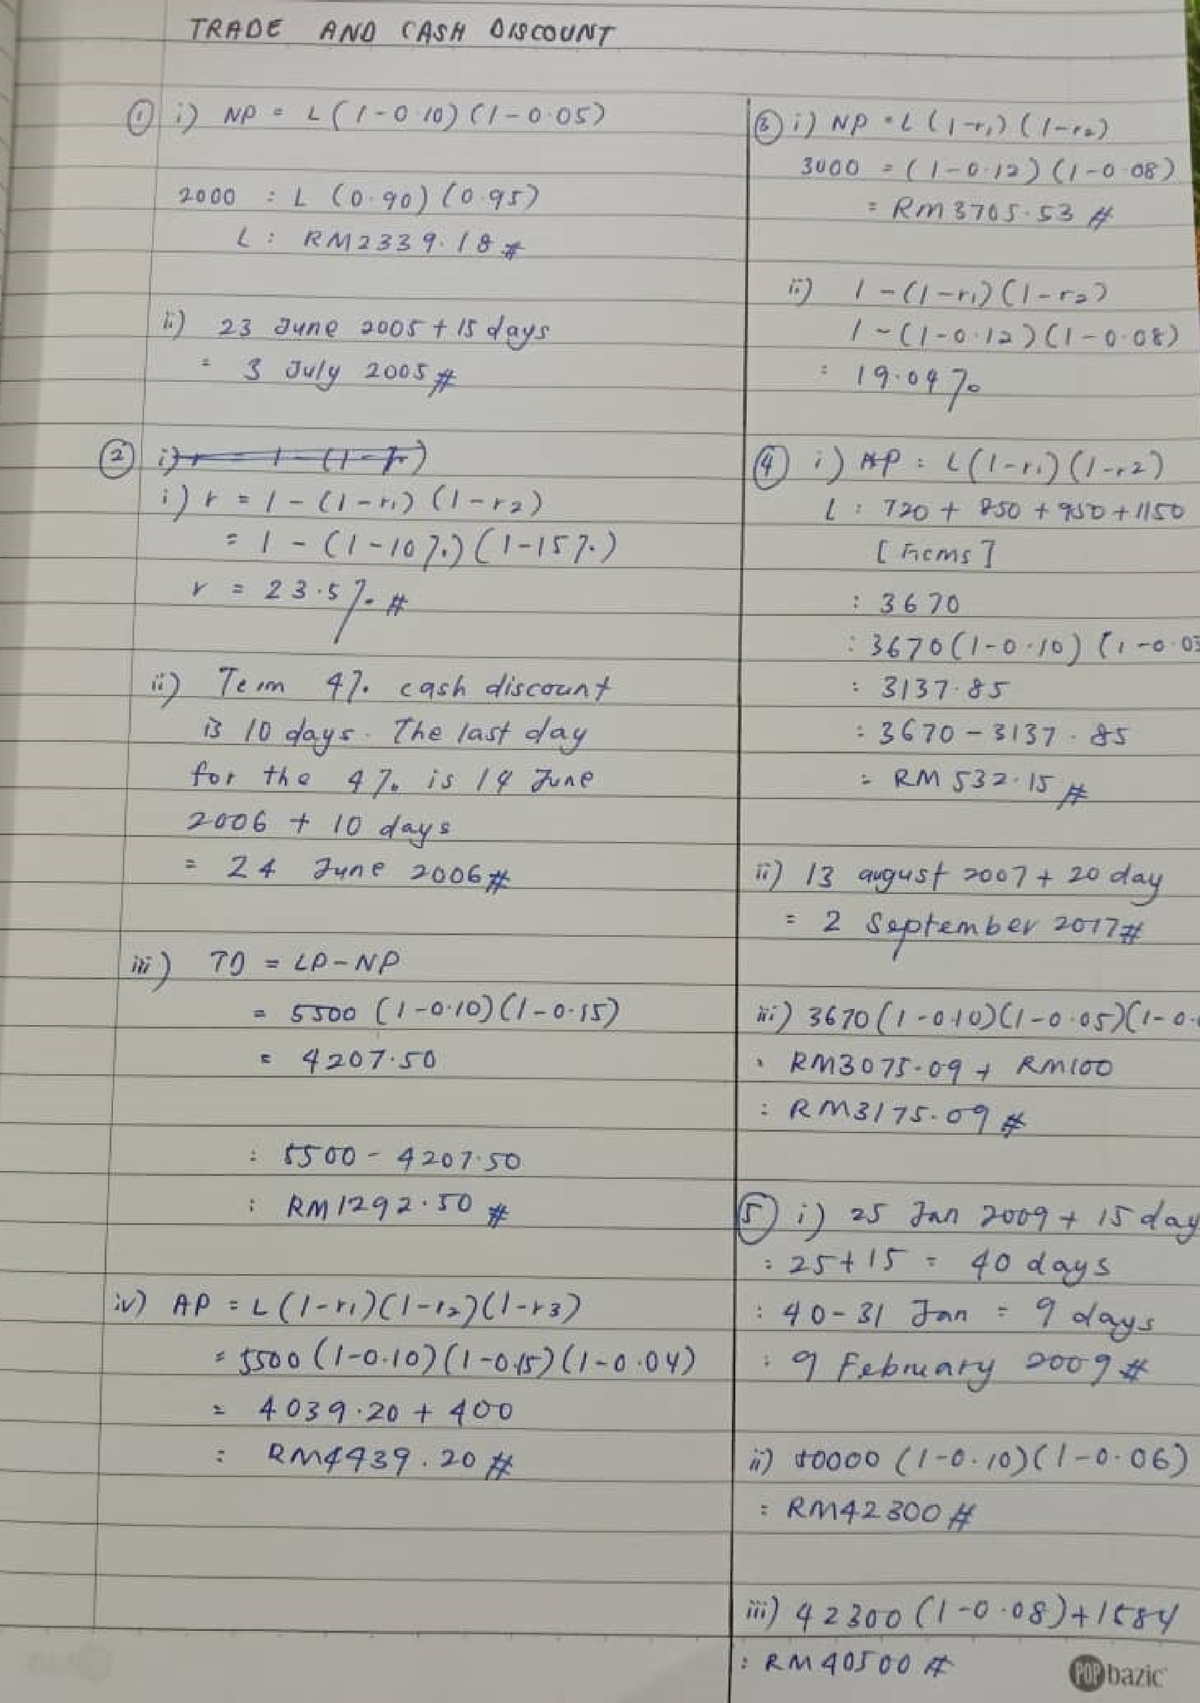 TRADE AND CASH DISCOUNT
① i) NP = L (1-0.10) (1-0.05)
2000 : L (0.90) (0.95)
L : RM2339.18 #
ii) 23 June 2005 + 15 days
= 3 July 2005 #
② i) r = 1 - (1-r)
i) r = 1 - (1-r1) (1-r2)
= 1 - (1-10%) (1-15%)
r = 23.5% #
ii) Term 4% cash discount
is 10 days. The last day
for the 4% is 14 June
2006 + 10 days
= 24 June 2006 #
iii) TD = LP-NP
= 5500 (1-0.10) (1-0.15)
= 4207.50
: 5500 - 4207.50
: RM1292.50 #
iv) AP = L(1-r1)(1-r2)(1-r3)
= 5500 (1-0.10) (1-0.15) (1-0.04)
= 4039.20 + 400
: RM4439.20 #
③ i) NP = L (1-r1) (1-r2)
3000 = (1-0.12) (1-0.08)
= RM3705.53 #
ii) 1-(1-r1) (1-r2)
1-(1-0.12) (1-0.08)
: 19.04%
④ i) NP = L(1-r1) (1-r2)
L : 720 + 850 + 950 + 1150
[items]
: 3670
: 3670 (1-0.10) (1-0.05
: 3137.85
: 3670 - 3137.85
= RM 532.15 #
ii) 13 august 2007 + 20 day
= 2 September 2017 #
iii) 3670 (1-0.10)(1-0.05)(1-0.
: RM3075.09 + RM100
: RM3175.09 #
⑤ i) 25 Jan 2009 + 15 day
: 25+15 = 40 days
: 40-31 Jan = 9 days
: 9 February 2009 #
ii) 50000 (1-0.10) (1-0.06)
: RM42300 #
iii) 42300 (1-0.08) + 1584
: RM40500 #
POP bazic